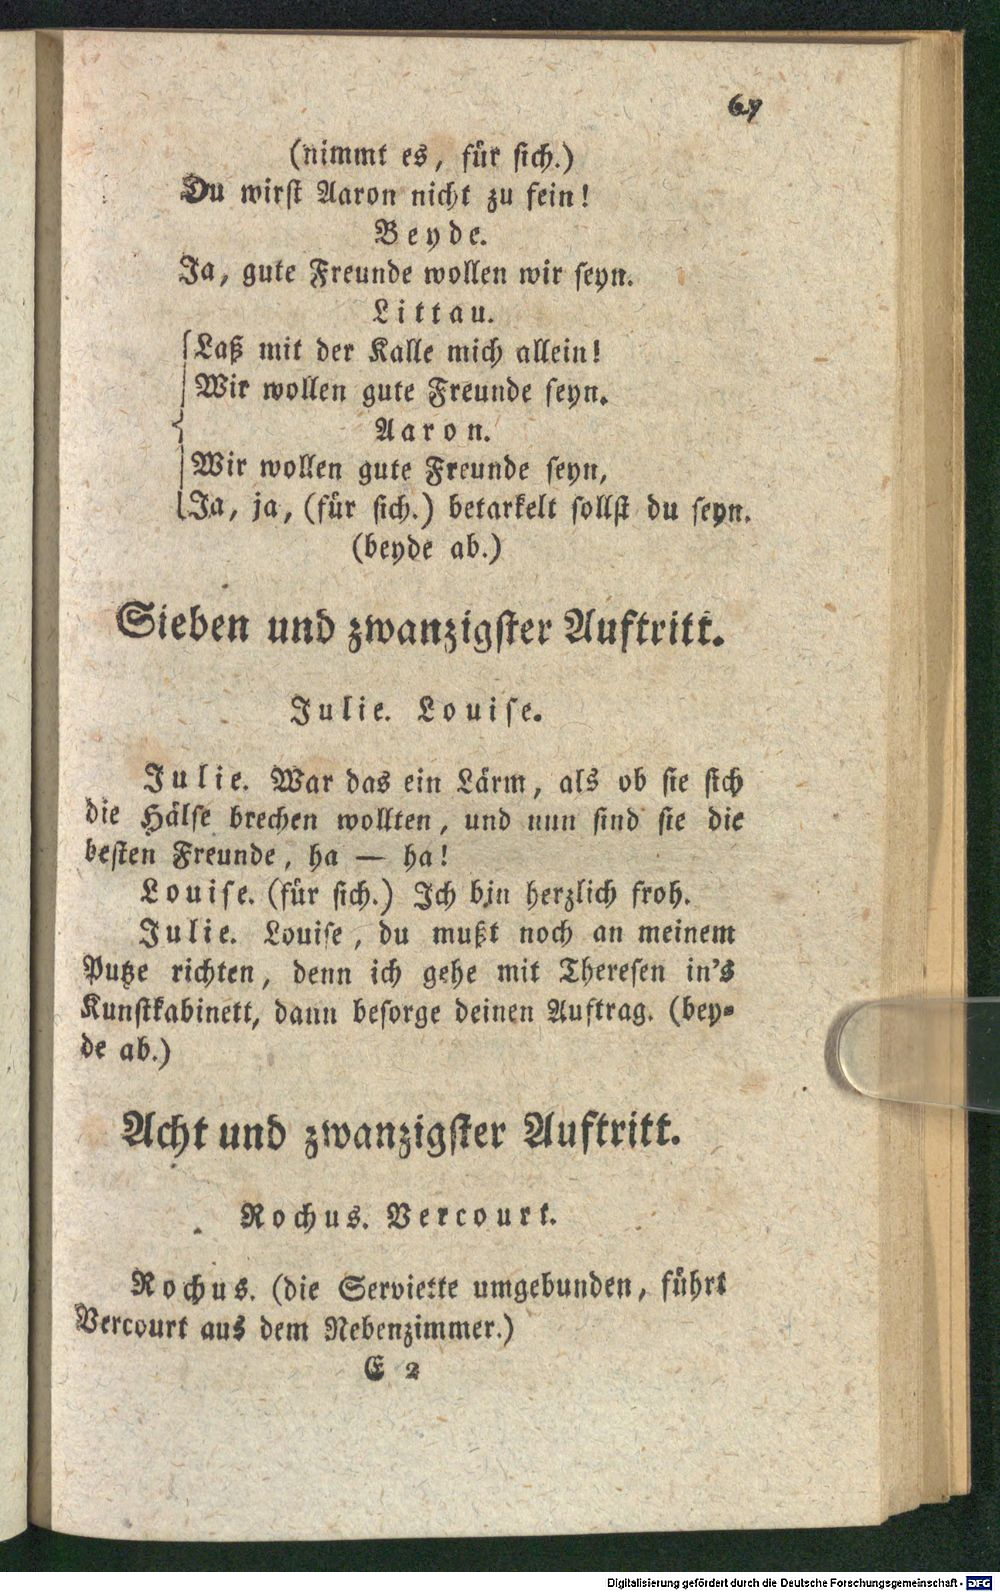 67
(nimmt es, für sich.)
Du wirst Aaron nicht zu fein!
Beyde.
Ja, gute Freunde wollen wir seyn.
Littau.
Laß mit der Kalle mich allein!
Wir wollen gute Freunde seyn.
Aaron.
Wir wollen gute Freunde seyn,
Ja, ja, (für sich.) betarkelt sollst du seyn.
(beyde ab.)
Sieben und zwanzigster Auftritt.
Julie. Louise.
Julie. War das ein Lärm, als ob sie sich
die Hälse brechen wollten, und nun sind sie die
besten Freunde, ha — ha!
Louise. (für sich.) Ich bin herzlich froh.
Julie. Louise, du mußt noch an meinem
Putze richten, denn ich gehe mit Theresen in's
Kunstkabinett, dann besorge deinen Auftrag. (bey-
de ab.)
Acht und zwanzigster Auftritt.
Rochus. Vercourt.
Rochus. (die Serviette umgebunden, führt
Vercourt aus dem Nebenzimmer.)
E 2
Digitalisierung gefördert durch die Deutsche Forschungsgemeinschaft - DFG